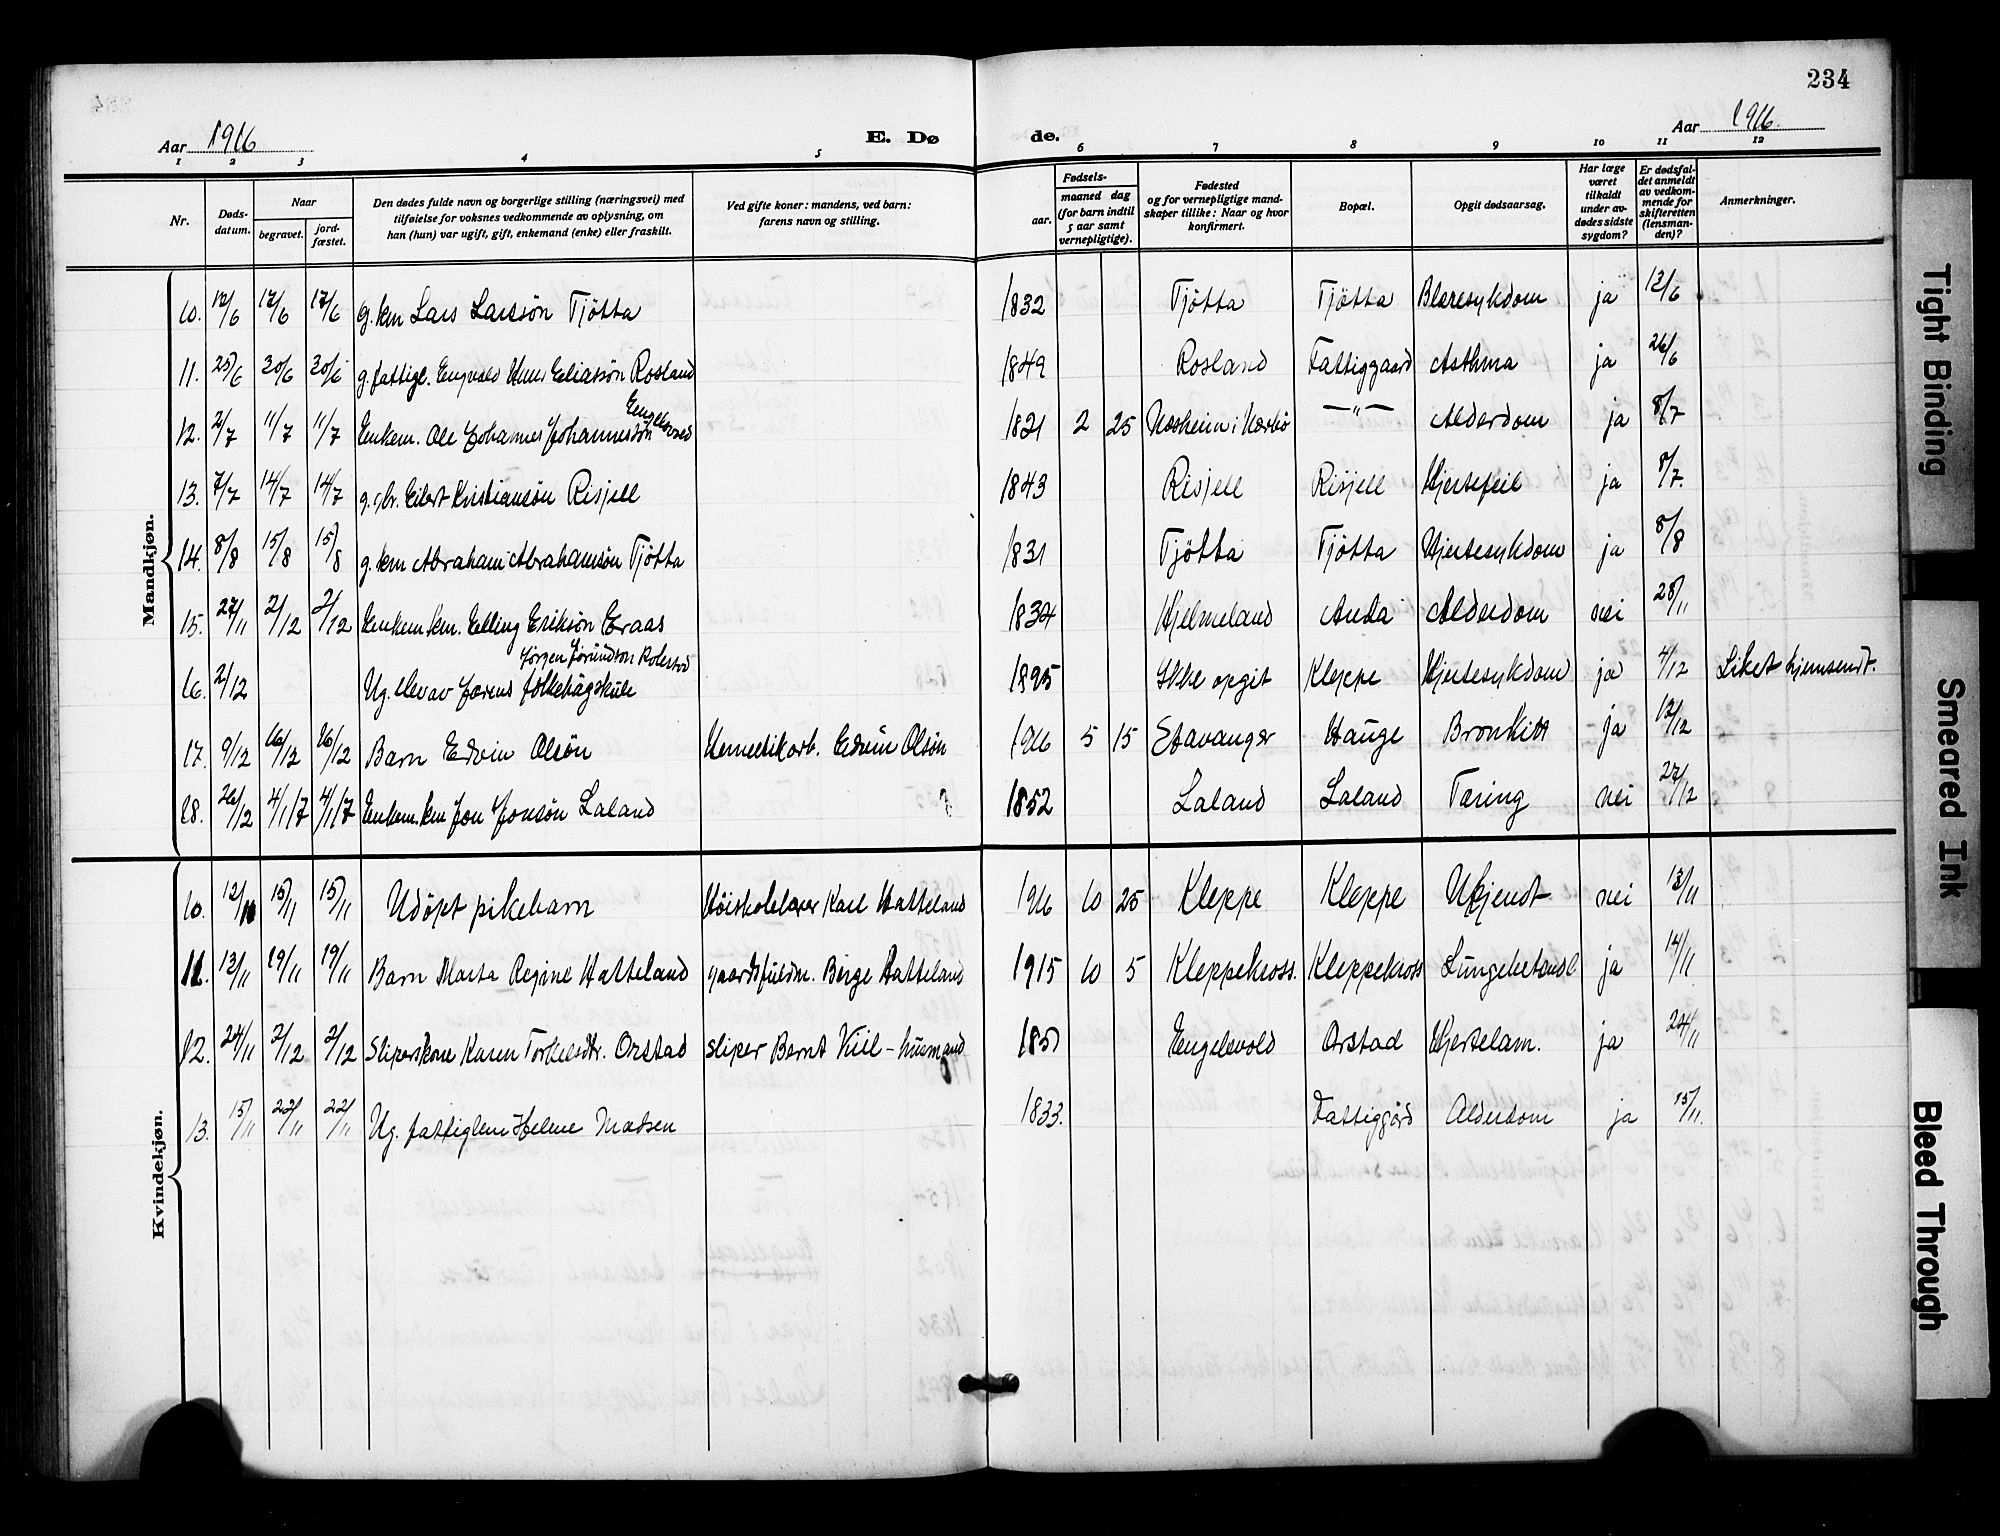 234
Aar 1916
E. Dø
de.
Aar 1916.
1 2 3 4 5 6 7 8 9 10 11 12
Nr.
Døds-
datum.
Naar
begravet.
jord-
fæstet.
Den dødes fulde navn og borgerlige stilling (næringsvei) med
tilføielse for voksnes vedkommende av oplysning, om
han (hun) var ugift, gift, enkemand (enke) eller fraskilt.
Ved gifte koner: mandens, ved barn:
farens navn og stilling.
Fødsels-
aar.
maaned dag
(for barn indtil
5 aar samt
vernepligtige).
Fødested
og for vernepligtige mand-
skaper tillike: Naar og hvor
konfirmert.
Bopæl.
Opgit dødsaarsag.
Har læge
været
tilkaldt
under av-
dødes sidste
sygdom?
Er dødsfal-
det anmeldt
av vedkom-
mende for
skifteretten
(lensman-
den)?
Anmerkninger.
Mandkjøn.
10. 12/6 17/6 17/6 g. km Lars Larssøn Tjøtta 1832 Tjøtta Tjøtta Blæresykdom ja 13/6
11. 25/6 30/6 30/6 g. fattigl. Engvald Eliassøn Rosland 1849 Rosland Fattiggaard Asthma ja 26/6
12. 2/7 11/7 11/7 Enkem. Ole Johannes Johannessøn Engelsvold 1821 2 25 —"— Alderdom ja 8/7
13. 7/7 14/7 14/7 g. gbr. Eilert Kristiansøn Risjell 1843 Risjell Risjell Hjertefeil ja 8/7.
14. 8/8 15/8 15/8 g. km Abraham Abrahamsøn Tjøtta 1831 Tjøtta Tjøtta Hjertesykdom ja 8/8
15. 27/11 2/12 2/12 Enkem. km. Elling Eriksøn Eraas 1834 Hjelmeland Anda Alderdom nei 28/11
Jørgen Jørundson Rolestad
16. 2/12 Ug. elev av Jærens folkehøgskule 1895 Ikke opgit Kleppe Hjertesykdom ja 4/12 Liket hjemsendt.
17. 9/12 16/12 16/12 Barn Edvin Olsøn Hermetikarb. Edvin Olsøn 1916 5 15 Stavanger Hauge Bronkitt ja 12/12
18. 26/12 4/1 17 4/1 17 Enkem. km Jon Jonsøn Laland 1852 Laland Laland Tæring nei 27/12
Kvindekjøn.
10. 12/11 15/11 15/11 Udøpt pikebarn Høiskolelærer Karl Hatteland 1916 10 25 Kleppe Kleppe Ukjendt nei 13/11
11. 13/11 19/11 19/11 Barn Marta Regine Hatteland gaardsfuldm. Børge Hatteland 1915 10 5 Kleppekross. Kleppekross Lungebetændl ja 14/11
12. 24/11 2/12 2/12 Sliperskone Karen Torkelsdtr. Orstad sliper Bernt Kiil - husmand 1851 Engelsvold Orstad Hjertelam. ja 24/11
13. 15/11 22/11 22/11 Ug. fattiglem Helene Madsen 1833. Fattiggård Alderdom ja 15/11.
Tight Binding
Smeared Ink
Bleed Through